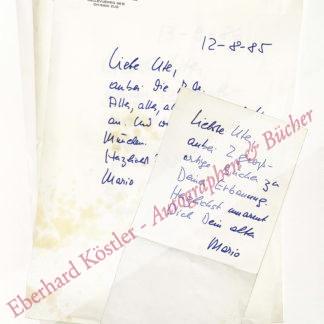 12-8-85
Liebe Ute,
anbei die
Alles, alles,
an. Und
München.
Herzlichst
Mario
Liebste Ute,
anbei 2
Deiner Erbauung.
Herzlichst umarmt
Dich Dein alter
Mario
Eberhard Köstler - Autographen & Bücher